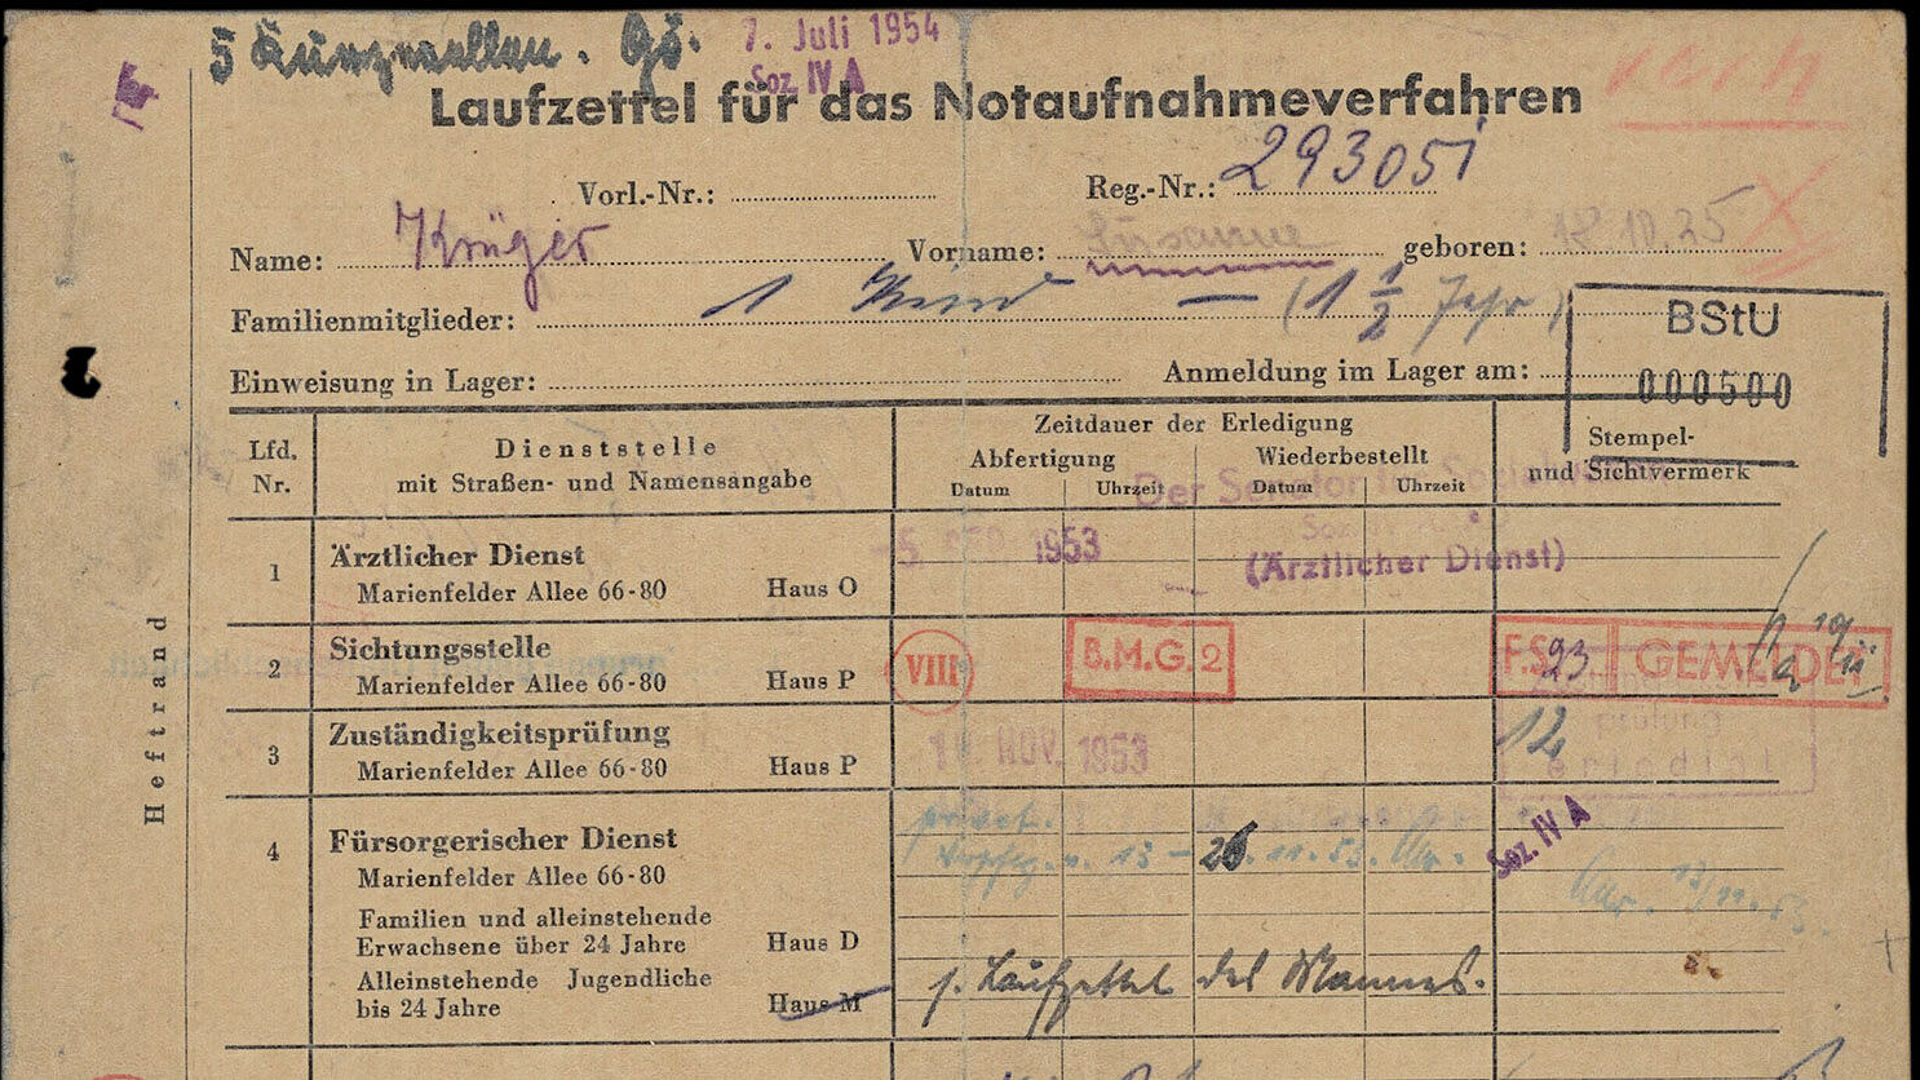 7. Juli 1954
Soz. IV A
Laufzettel für das Notaufnahmeverfahren
Vorl.-Nr.: Reg.-Nr.: 293051
Name: Krüger Vorname: Susanne geboren: 18.10.25
Familienmitglieder: 1 Kind — (1 1/2 Jahr)
BStU
000500
Einweisung in Lager: Anmeldung im Lager am:
Lfd. Nr.
Dienststelle
mit Straßen- und Namensangabe
Zeitdauer der Erledigung
Abfertigung Wiederbestellt
Datum Uhrzeit Datum Uhrzeit
Stempel-
und Sichtvermerk
1 Ärztlicher Dienst
Marienfelder Allee 66-80 Haus O
1953
Der Senator
(Ärztlicher Dienst)
2 Sichtungsstelle
Marienfelder Allee 66-80 Haus P
VIII B.M.G. 2 F.S. 93 GEMELDET
3 Zuständigkeitsprüfung
Marienfelder Allee 66-80 Haus P
NOV. 1953
prüfung
erledigt
4 Fürsorgerischer Dienst
Marienfelder Allee 66-80
Soz. IV A
Familien und alleinstehende
Erwachsene über 24 Jahre Haus D
Alleinstehende Jugendliche
bis 24 Jahre Haus M
s. Laufzettel des Mannes.
Heftrand